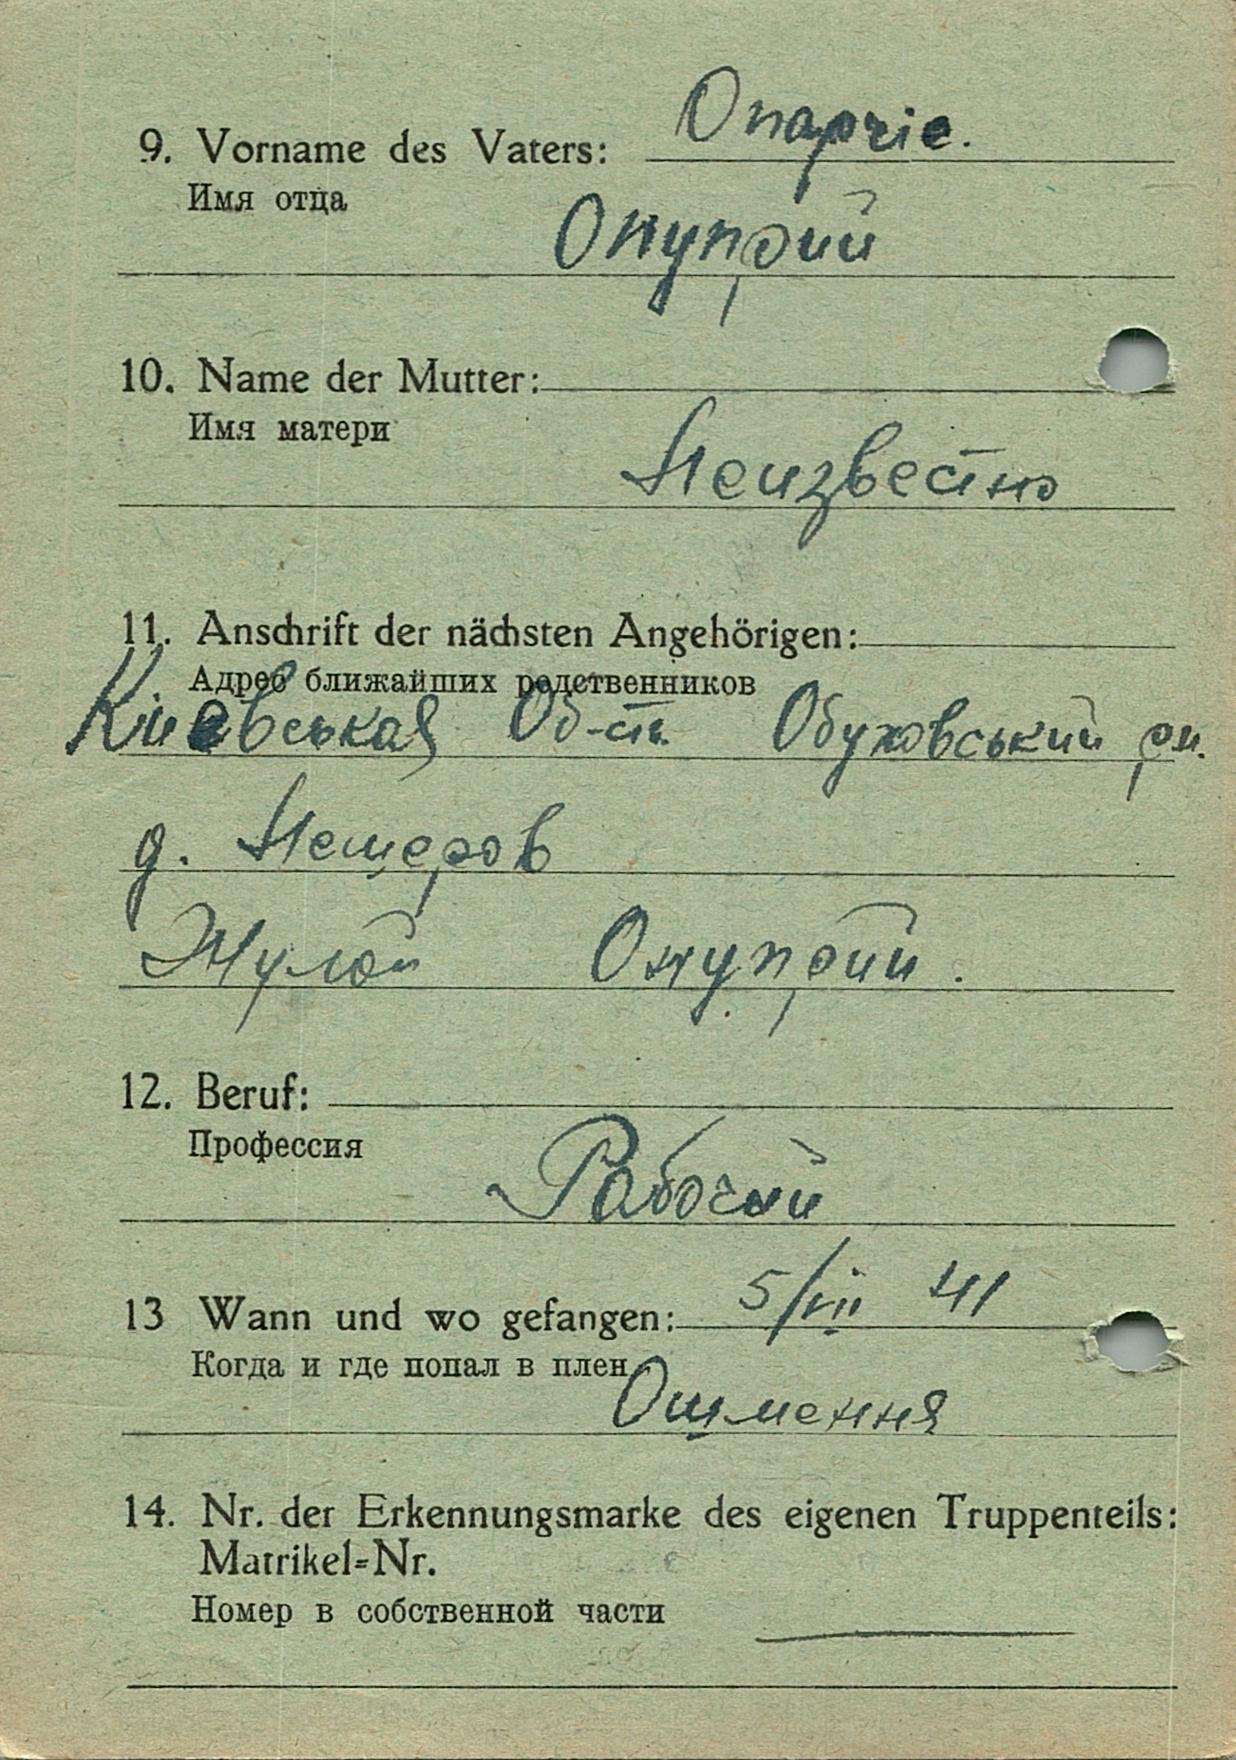 9. Vorname des Vaters: Onaprie.
Имя отца
Онуприй
10. Name der Mutter:
Имя матери
Неизвестно
11. Anschrift der nächsten Angehörigen:
Адрес ближайших родственников
Киевськая Об-ть Обуховський рн.
д. Нещеров
Жулой Онуприй.
12. Beruf:
Профессия
Рабочий
13 Wann und wo gefangen: 5/VII 41
Когда и где попал в плен
Ошмення
14. Nr. der Erkennungsmarke des eigenen Truppenteils:
Matrikel=Nr.
Номер в собственной части